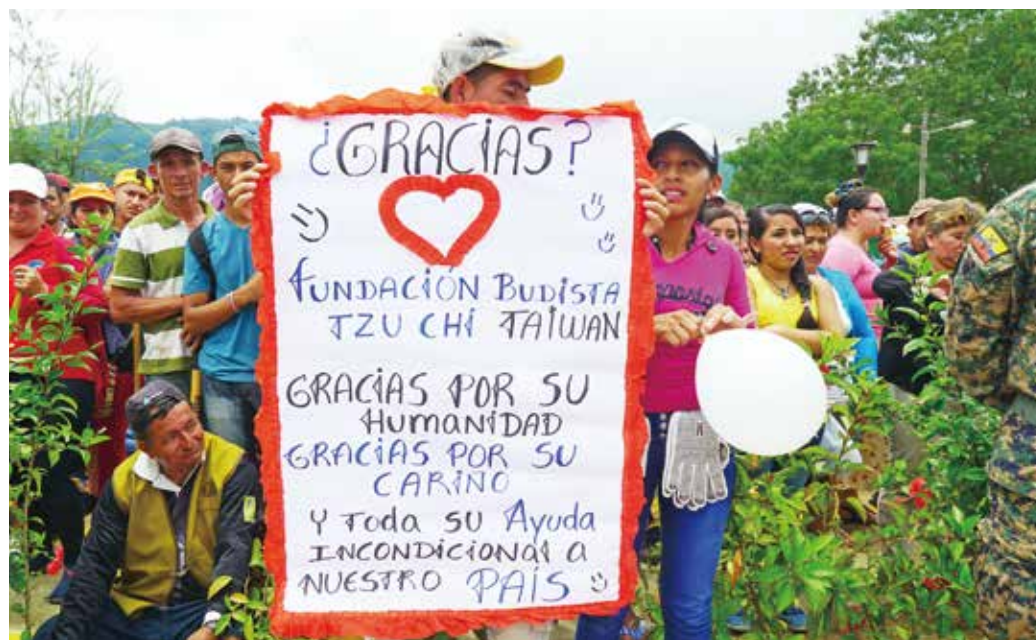 ¿GRACIAS?
FUNDACIÓN BUDISTA
TZU CHI TAIWAN
GRACIAS POR SU
HUMANIDAD
GRACIAS POR SU
CARIÑO
Y TODA SU Ayuda
INCONDICIONAL a
NUESTRO PAÍS